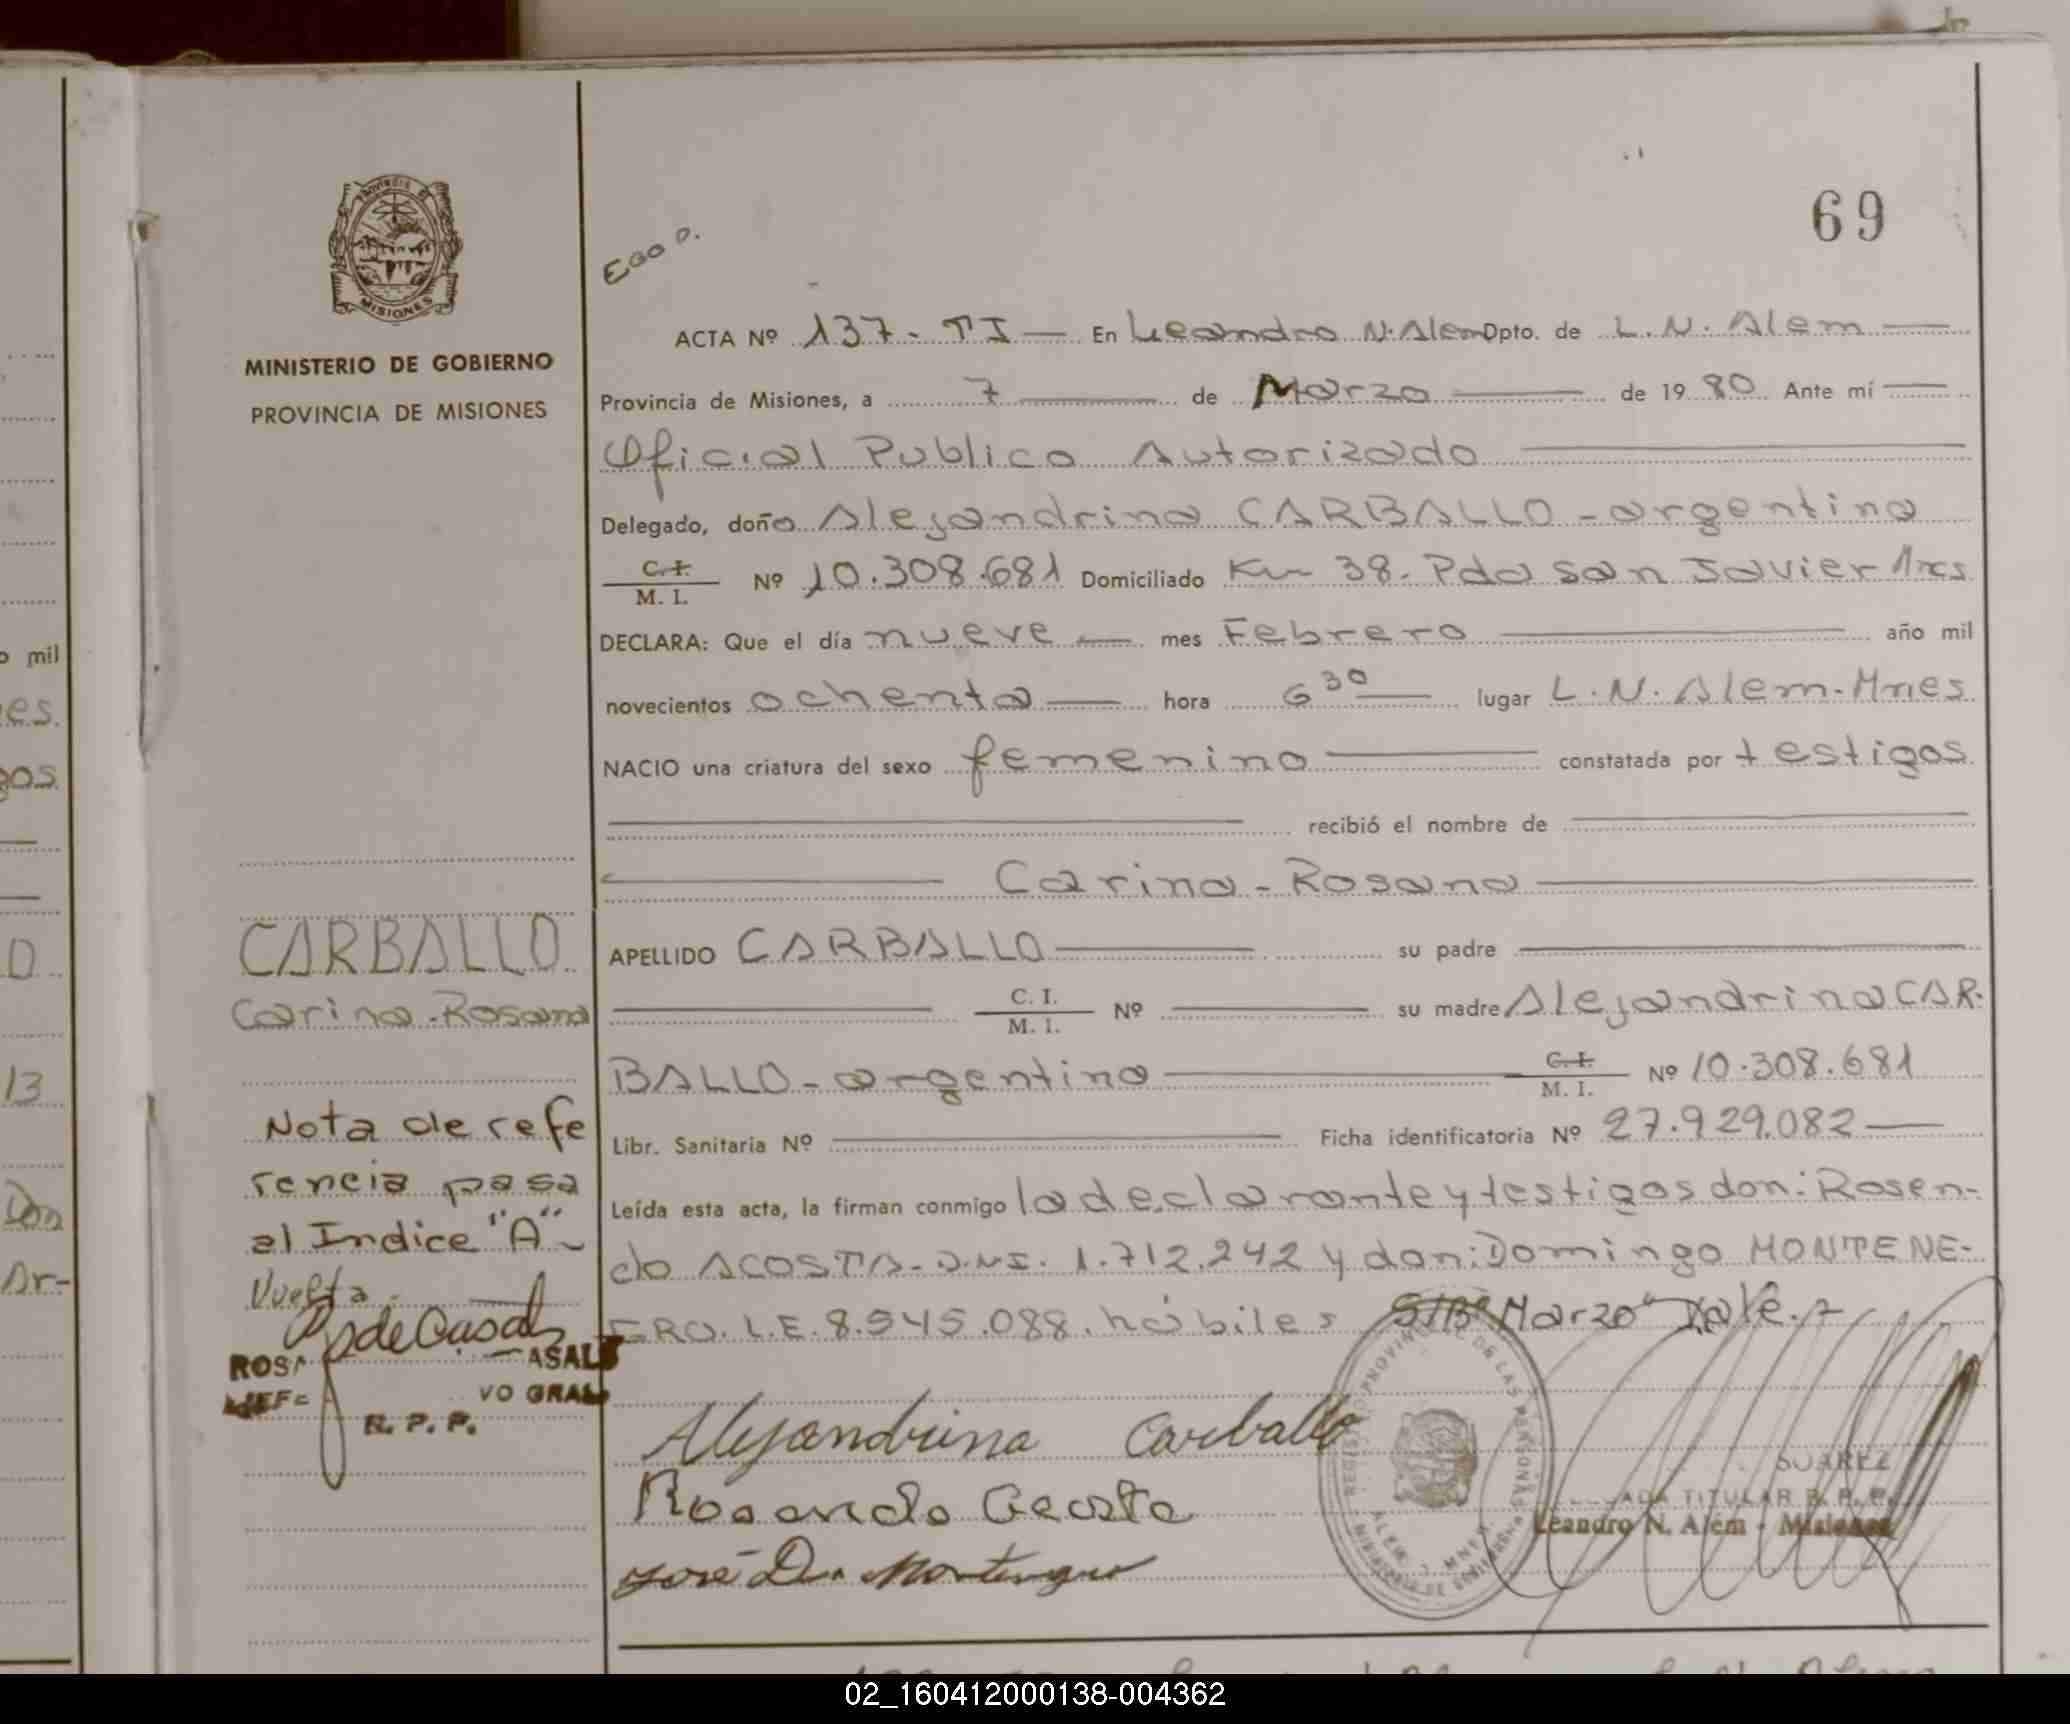 69
Ego P.
PROVINCIA DE
MISIONES
MINISTERIO DE GOBIERNO
PROVINCIA DE MISIONES
ACTA Nº 137-TI — En Leandro N. Alem Dpto. de L.N. Alem —
Provincia de Misiones, a 7 — de Marzo — de 1980. Ante mí —
Oficial Publico Autorizado —
Delegado, doña Alejandrina CARBALLO - argentina
C. I. / M. I. Nº 10.308.681 Domiciliado Km 38. Pdo San Javier Mnes
DECLARA: Que el día nueve — mes Febrero — año mil
novecientos ochenta — hora 6 30 — lugar L.N. Alem-Mnes.
NACIO una criatura del sexo femenino — constatada por testigos
— recibió el nombre de —
— Carina - Rosana —
APELLIDO CARBALLO — su padre —
— C. I. / M. I. Nº — su madre Alejandrina CAR-
BALLO - argentina — C. I. / M. I. Nº 10.308.681
Libr. Sanitaria Nº — Ficha identificatoria Nº 27.929.082 —
Leída esta acta, la firman conmigo la declarante y testigos don: Rosen-
do ACOSTA- D.N.I. 1.712.242 y don: Domingo MONTENE-
GRO. L.E. 8.545.088. hábiles S/Bº "Marzo" Vale.-
Alejandrina Carballo
Rosendo Acosta
José D. Montenegro
REGISTRO PROVINCIAL DE LAS PERSONAS
ALEM - MNES.
MINISTERIO DE GOBIERNO
SUAREZ
TITULAR R. P. P.
Leandro N. Alem - Misiones
CARBALLO
Carina-Rosana
Nota de refe
rencia pasa
al Indice "A"
Vuelta.
R. P. P.
o mil
es.
gos.
O
13
Don
Ar-
02_160412000138-004362